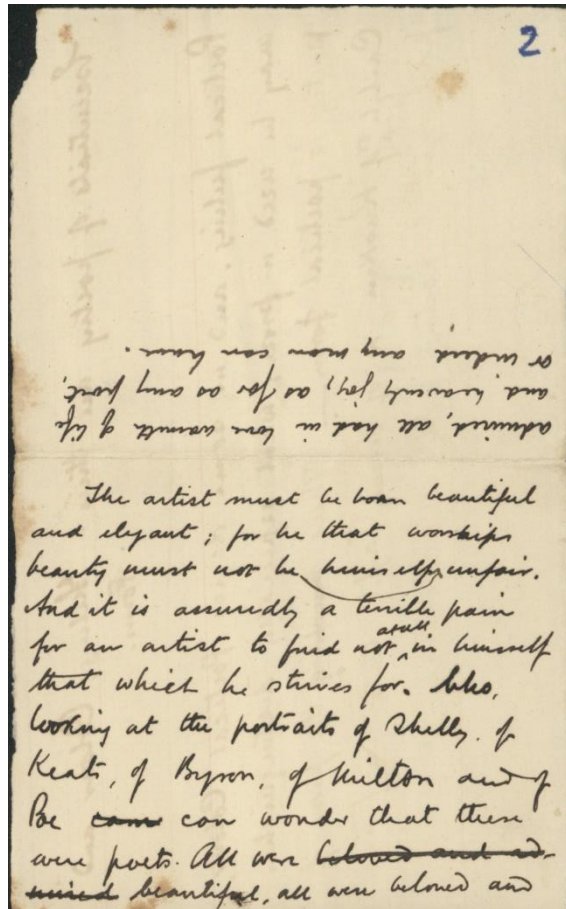 2
The artist must be born beautiful
and elegant; for he that worships
beauty must not be himself unfair.
And it is assuredly a terrible pain
for an artist to find not at all in himself
that which he strives for. Who,
looking at the portraits of Shelly, of
Keats, of Byron, of Milton and of
Poe came can wonder that these
were poets. All were beloved and ad-
mired beautiful, all were beloved and
admired, all had in love warmth of life
and heavenly joy, as far as any poet,
or indeed any man can have.